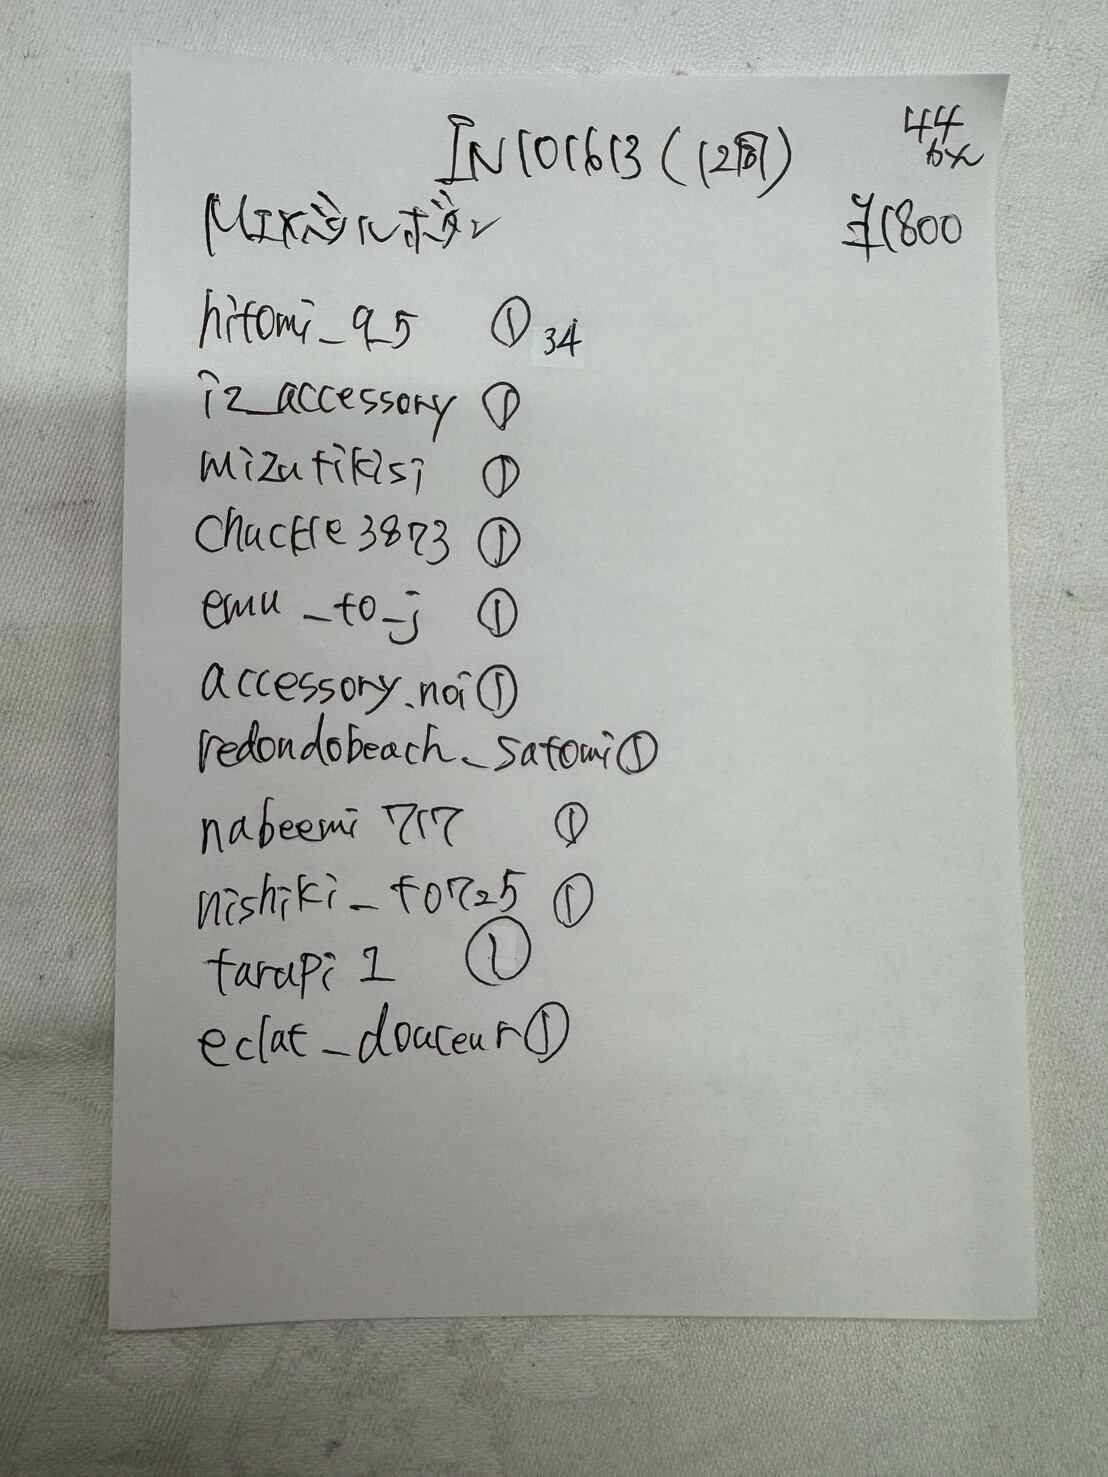 IN101613 (12個)
44
¥1800
MIX
hitomi_95 ① 34
iz_accessory ①
mizutikisi ①
chuckle3873 ①
emu_to_j ①
accessory.noi ①
redondobeach_satomi ①
nabeemi717 ①
nishiki_t0725 ①
tarupi1 ①
eclat_douceur ①